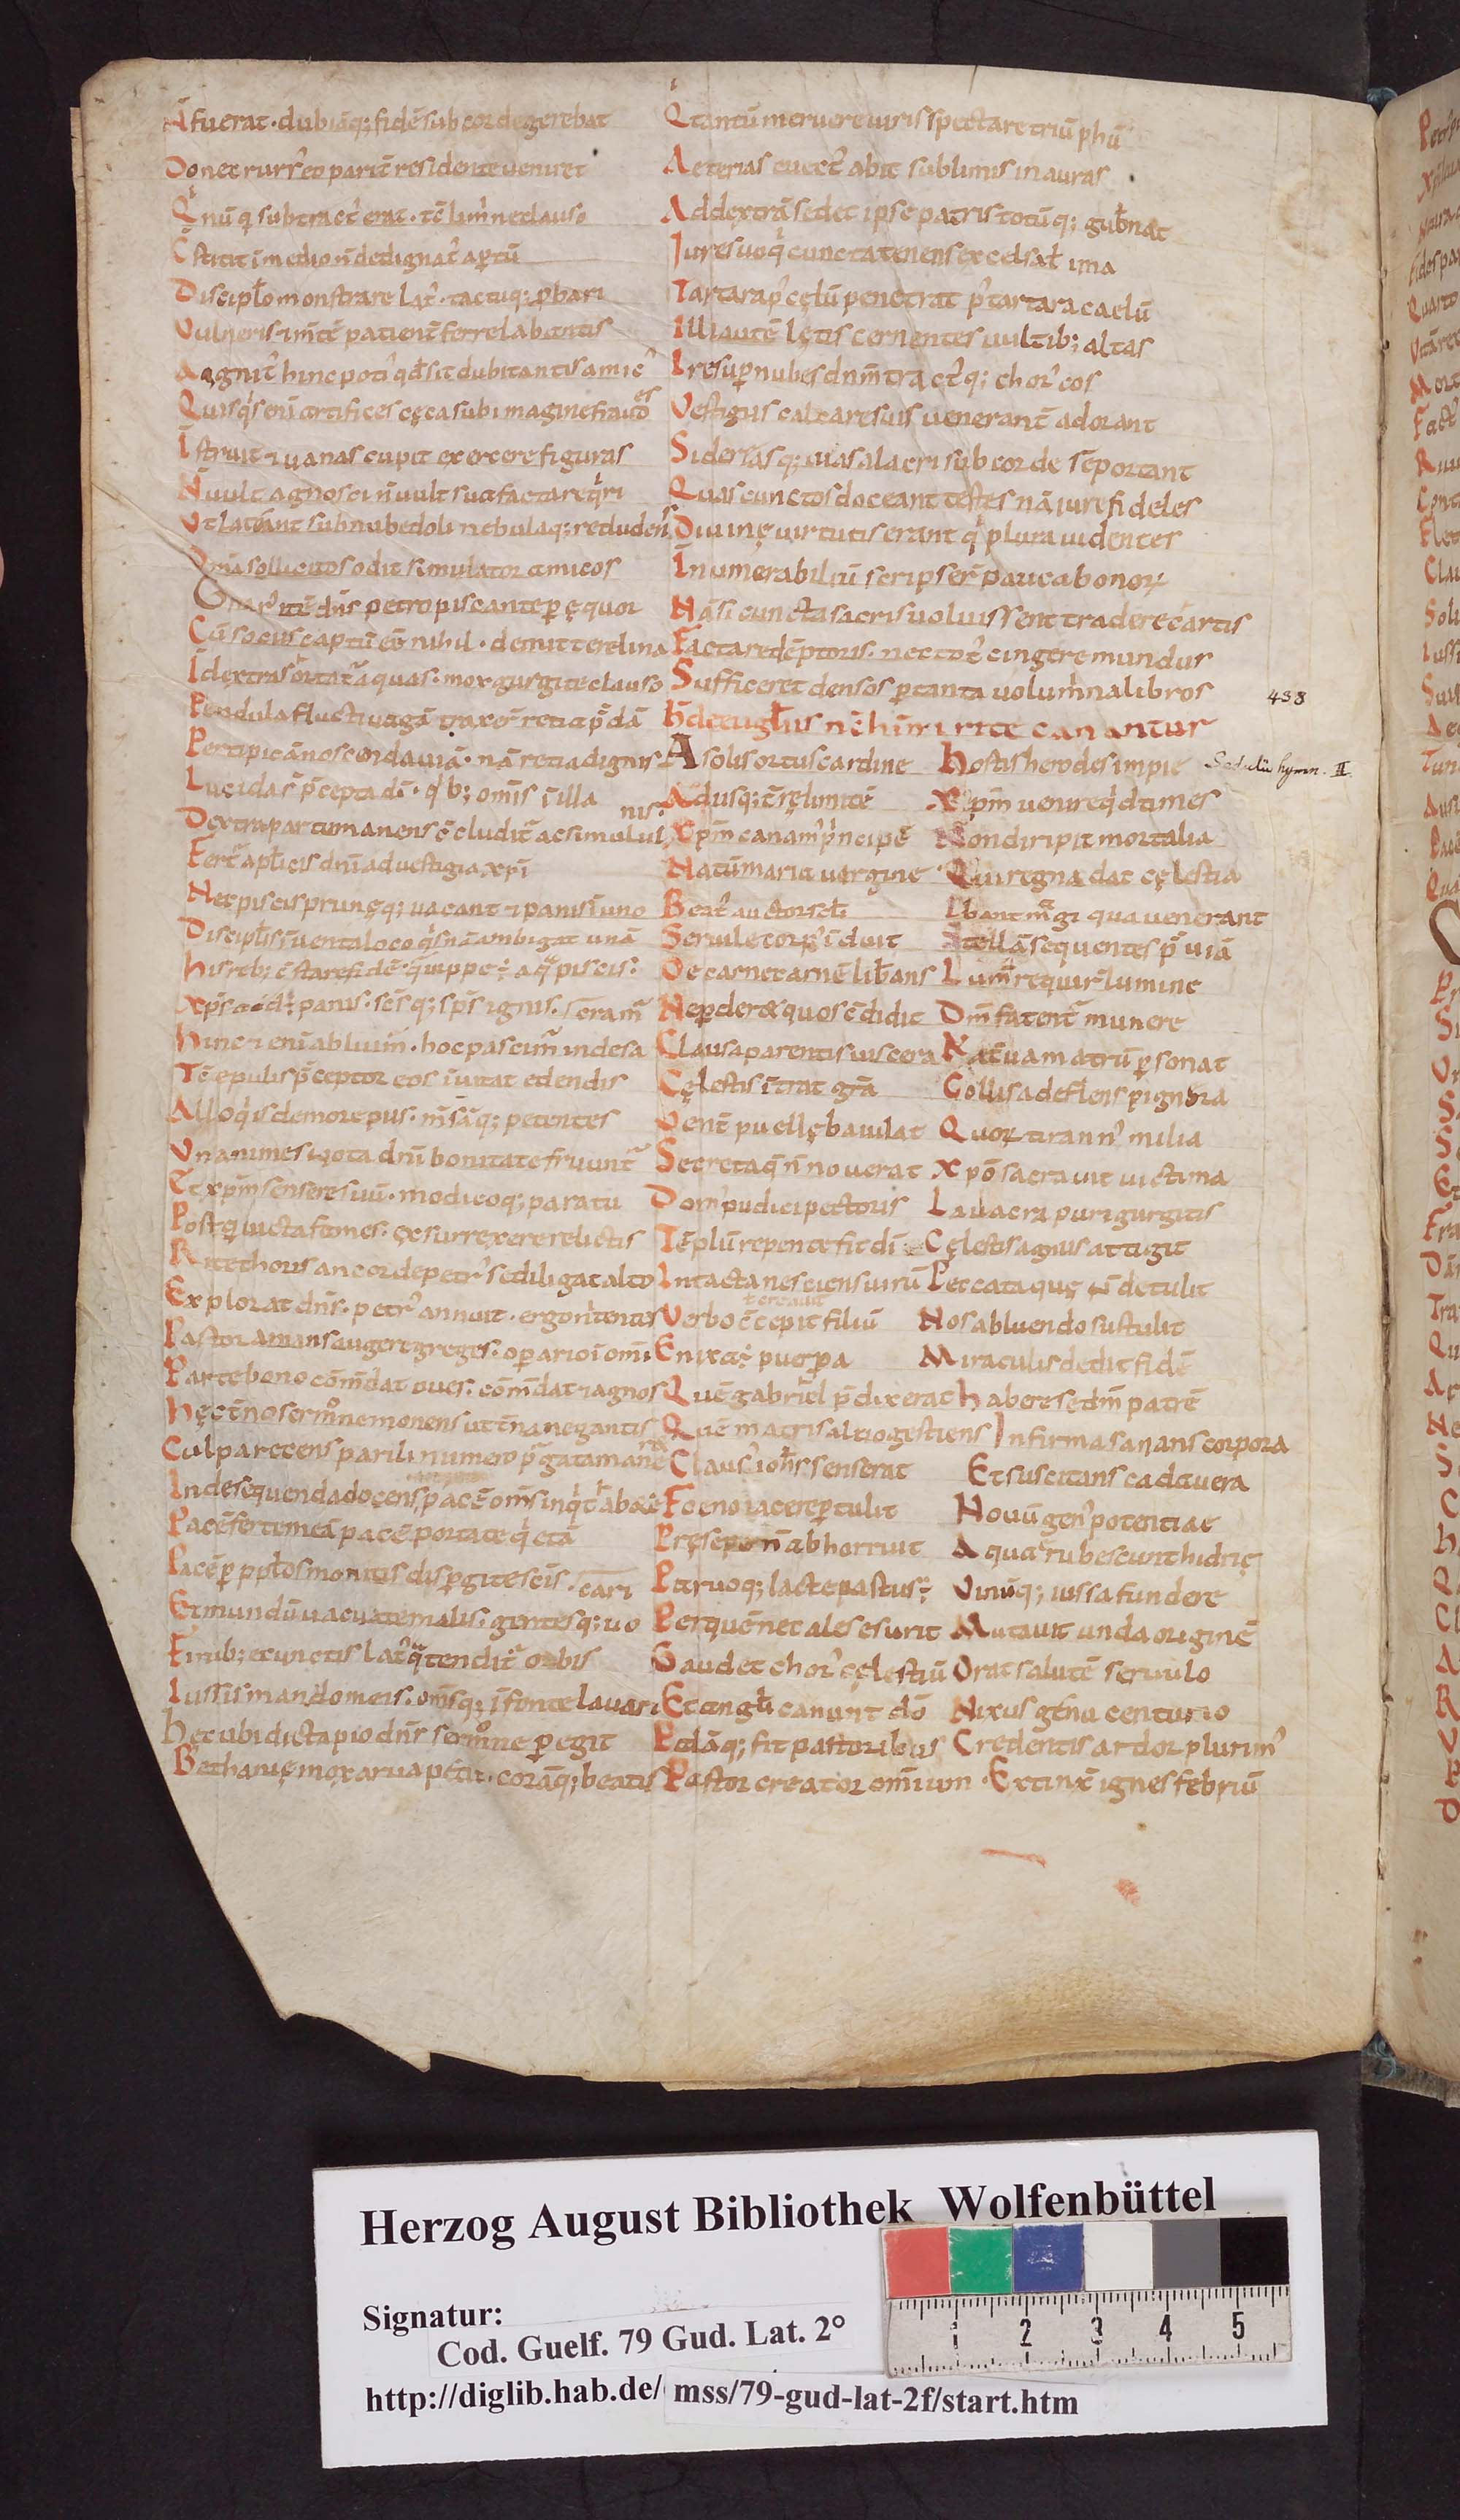 Āfuerat · dubiāq; fidē sub corde gerebat
Donec rurs' eo parit̄ residente veniret
Disciplo monstrare lat' · tactuq; p̄bari
Vulneris
Quisq's eni artifices cęca sub imagine fraudes
Istruit ⁊ vanas cupit exercere figuras
N̄ vult agnosci n̄ vult sua facta req'ri
Vt lateant sub nube doli nebulaq; recludens
Om̄a sollicitos odit simulator amicos
petro piscante ꝑ ęquor
Cū sociis captū eē nihil · demittere lina
I dextras ortat' aquas · mox gurgite clauso
Pendula fluctivagā traxer̄ retia p̄dā
Per tipicā noscenda viā · nā retia dignis
Lucida s̄ p̄cepta dī · q'b; om̄is ī illa
nis·
Dextra parte manens
Fert' aplicis dnī ad vestigia xpī
Nec piscis prunęq; vacant ⁊ panis ī uno
Discipl̄is īventa loco q's nā ambigat unā
His reb; c̄stare fidē
panis · sc̄s q; sp̄s ignis ·
Hinc ⁊ enī abluim̄ · hoc pascim̄ inde sa
Tc̄ epulis p̄ceptor eos īvitat edendis
Alloq'is de more pus · m̄sāq; petentes
Vnanimes nota dnī bonitate fruunt'
Et xp̄m sensere suū · modicoq; paratu
Postq̄ victa fames · exsurrexere relictis
Rite thoris an corde petr' se diligat alto
Explorat dn̄s · petr' annuit · ergo
Pastor amans augere greges · oꝑario ī omī
Parte bono cōm̄dat oves · cōm̄dat ⁊ agnos
Hęc t̄no sermone monens ut t̄na negantis
Culpa recens parili numero p̄gata maner&
Inde sequenda docens
Pacē ferte meā pacē portate q'etā
Pacē ꝑ pp̄los monitis disꝑgite sc̄is ·
cari
Et mundū vacuate malis · gentesq; vo
Finib; e cunctis
orbis
Iussis mando meis · om̄sq; ī fonte lavari
Hęc ubi dicta pio dn̄s sermone ꝑegit
Bethanię mox arva petit · corāq; beatis
Q' tantū meruere viris spectare triūphū
Aeterias evect' abit sublimis in auras
Ad dextrā sedet ipse patris totūq; gub̄nat
Iure suo q' cuncta tenens excelsa t̄ ima
Tartara p' cęlū penetrat p' tartara caelū
Illi autē lętis cernentes vultib; altas
Ire suꝑ nubes dn̄m tract'q; chor'cos
Vestigiis calcare suis venerant̄ adorant
Sidereasq; vias alacri sub corde reportant
Quas cunctos doceant testes nā iure fideles
Divinę virtutis erant q' plura videntes
Inumerabiliū scripser̄ pauca bonoꝝ
Nā si cuncta sacris voluissent tradere cartis
Facta redēptoris · nec tot' cingere mundus
Sufficeret densos ꝑ tanta volumina libros
canantur
A solis ortus cardine
Adusq; t̄rę limitē
Xp̄m canam' p'ncipē
Natū maria virgine
Beat' auctor scl̄i
Servile corp' īduit
De carne carnē lib̄ans
Ne ꝑder& quos c̄didit
Clausa parentis viscera
Cęlestis ītrat gr̄a
Vent̄ puellę baiulat
Secreta q̄ n̄ noverat
Dom' pudici pectoris
Tēplū repente fit dī
Intacta nesciens virū
Verbo c̄cepit filiū
Enixa ÷ puerꝑa
Quē gabriel p̄dixerat
Quē matris alvo gestiens
Claus' ioh̄s senserat
Foeno iacere ꝑtulit
Pręsepe n̄ abhorruit
Parvoq; lacte pastus ÷
Per quē nec ales esurit
Gaudet chor' cęlestiū
Et angl̄i canunt dō
Palāq; fit pastoribus
Pastor creator omnium
Hostis herodes impie
Xp̄m venire q'd times
Non diripit mortalia
Qui regna dat cęlestia
Ibant magi qua venerant
Stellā sequentes p̄viā
Lum̄ requir̄ lumine
Dm̄ fatent̄ munere
Kat̄va matrū ꝑsonat
Collisa deflens pignora
Quoꝝ tirann' milia
Xpō sacravit victima
Lavacra puri gurgitis
Cęlestis agnus attigit
Peccata quę n̄ detulit
Nos abluendo sustulit
Miraculis dedit fidē
Habere se dm̄ patrē
Infirma sanans corpora
Et suscitans cadavera
Novū gen' potentiae
Aquae rubescunt hidrię
Vinūq; iussa fundere
Mutavit unda originē
Orat salutē servulo
Nixus genu centurio
Credentis ardor plurim'
Extinx̄ ignes febriū
438
Sedulii hymn. II.
Herzog August Bibliothek Wolfenbüttel
Signatur:
Cod. Guelf. 79 Gud. Lat. 2°
http://diglib.hab.de/ mss/79-gud-lat-2f/start.htm
1 2 3 4 5